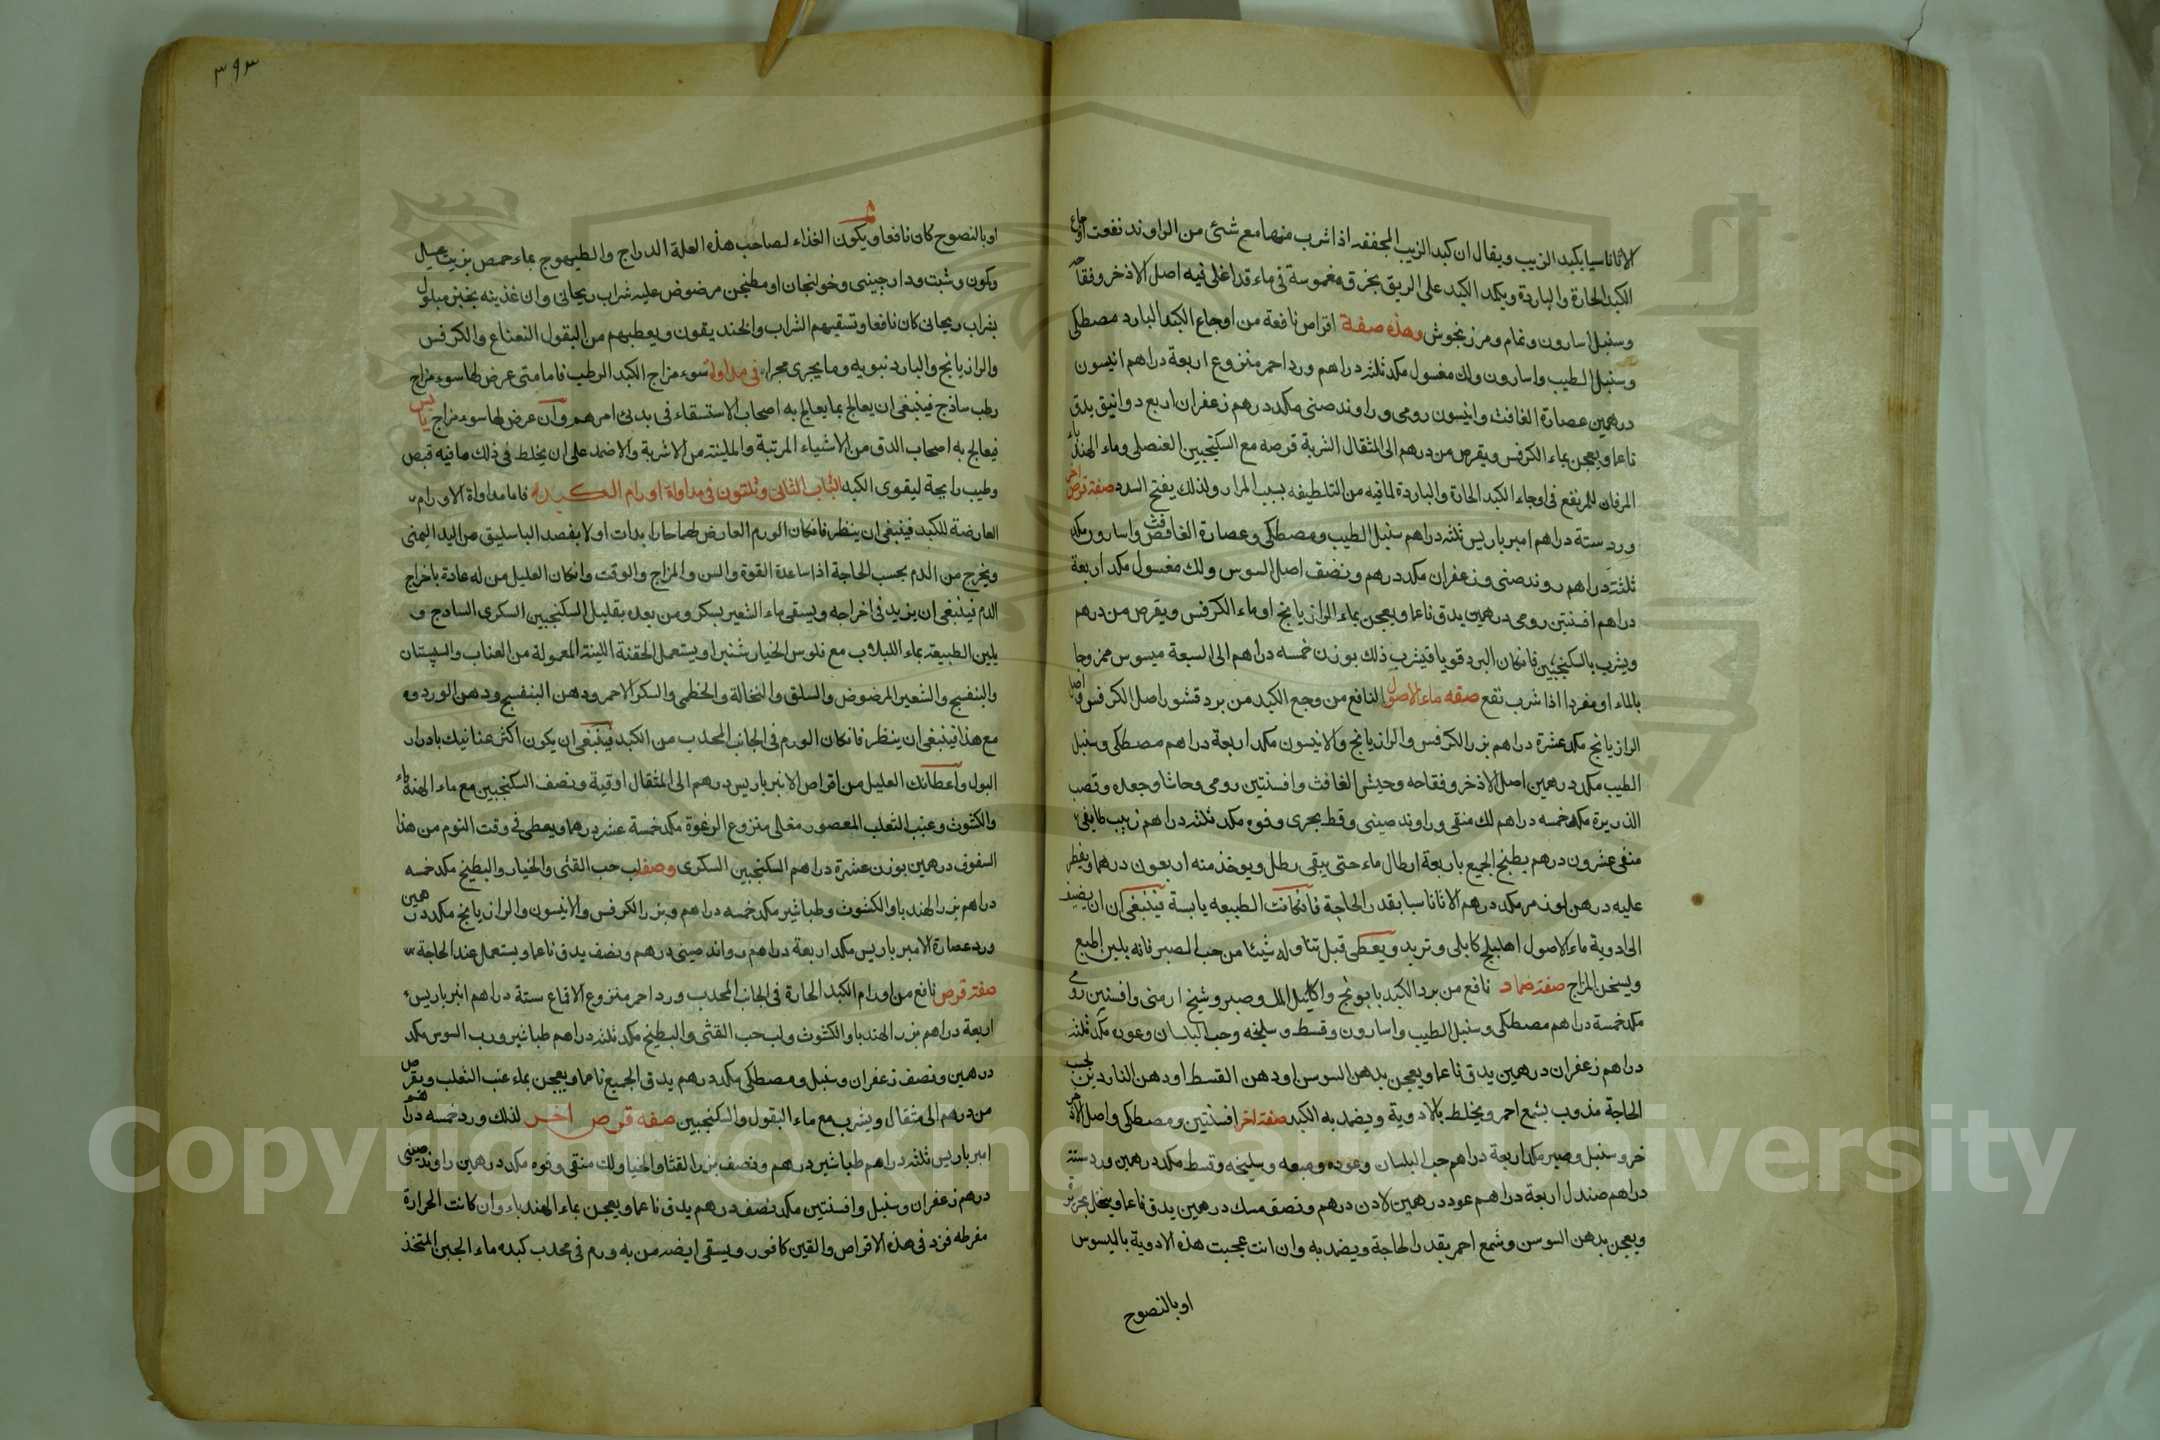 الاثاناسيا بكبد الزيب ويقال ان كبد الزيب المجففه اذا اشرب منها مع شئ من الراوند نفعت اوجاع
الكبد الحارة والباردة ويكمد الكبد على الريق بخرق مغموسة فى ماء قد اغلى فيه اصل الاذخر وفقاحه
وسنبل اسارون ونمام ومرزنجوش وهذه صفة اقراص نافعة من اوجاع الكبد البارد مصطكى
وسنبل الطيب واسارون ولك مغسول مكد ثلثه دراهم ورد احمر منزوع اربعة دراهم انيسون
درهمين عصارة الغافث وانيسون رومى وراوند صنى مكد درهم زعفران اربع دوانيق يدق
ناعما ويعجن بماء الكرفس ويقرص من درهم الى المثقال الشربة قرصه مع السكنجبين العنصلى وماء الهندباء
المرفان للرنفع فى اوجاء الكبد الحارة والباردة لما فيه من التلطيفه بسبب المرار ولذلك يفتح السدد صفة قرص اخر
ورد ستة دراهم امبرباريس ثلثه دراهم سنبل الطيب ومصطكى وعصارة الغافث واسارون مكد
ثلثة دراهم روند صنى وزعفران مكد درهم ونصف اصل السوس ولك مغسول مكد اربعة
دراهم افسنتين رومى درهمين يدق ناعما ويعجن بماء الرازيانج او ماء الكرفس ويقرص من درهم
ويشرب بالسكنجبين فانكان البرد قويا فيشرب ذلك بوزن خمسه دراهم الى السبعة ميسوس ممزوجا
بالماء او مفردا اذا شرب نفع صفه ماء الاصول النافع من وجع الكبد من برد قشور اصل الكرفس واصل
الرازيانج مكد عشرة دراهم بزر الكرفس والرازيانج والانيسون مكد اربعة دراهم مصطكى وسنبل
الطيب مكد درهمين اصل الاذخر وفقاحه وحيش الغافث وافسنتين رومى وحاشا وجعده وقصب
الذريرة مكد خمسه دراهم لك منقى وراوند صينى وقط بحرى وفوه مكد ثلثه دراهم زبيب طايفى
منقى عشرون درهم يطبخ الجميع باربعة ارطال ماء حتى يبقى رطل ويوخذ منه اربعون درهما ويقطر
عليه دهن لوز مر مكد درهم الاثاناسيا بقدر الحاجة فانكانت الطبيعه يابسة فينبغى ان يضيف
الى ادوية ماء الاصول اهليلج كابلى وتربد ويعطى قبل تناوله شيئا من حب الصبر فانه يلين الطبع
ويسخن المزاج صفة ضماد نافع من برد الكبد بابونج واكليل الملك وصبر وشيخ ارمنى وافسنتين رومى
مكد خمسة دراهم مصطكى وسنبل الطيب واسارون وقسط وسليخه وحب البلسان وعوده مكد ثلثه
دراهم زعفران درهمين يدق ناعما ويعجن بدهن السوس او دهن القسط او دهن الناردين بحسب
الحاجة مذوب بشمع احمر ويخلط بالادوية ويضمد به الكبد صفة اخر افسنتين ومصطكى واصل الاذ
خر وسنبل وصبر مكد اربعة دراهم حب البلسان وعوده وميعه وسليخه وقسط مكد درهمين ورد ستة
دراهم صندل اربعة دراهم عود درهمين لادن درهم ونصف مسك درهمين يدق ناعما وينخل بحريرة
ويعجن بدهن السوسن وشمع احمر بقدر الحاجة ويضمد به وان انت عجبت هذه الادوية بالميسوس
او بالنصوح
٣٩٣
او بالنصوح كان نافعا ويكون الغذاء لصاحب هذه العلة الدراج والطيهوج بماء حمص بزيت غسيل
وكمون وشبت ودارجينى وخولنجان او مطنجن مرضوض عليه شراب ريحانى وان غذيته بخبز مبلول
بشراب ريحانى كان نافعا وتسقيهم الشراب والخنديقون ويعطيهم من البقول النعناع والكرفس
والرازيانج والبارد نبويه وما يجرى مجراه فى مداواة سوء مزاج الكبد الرطب فاما متى عرض لها سوء مزاج
رطب ساذج فينبغى ان يعالج بما يعالج به اصحاب الاستسقاء فى بدئ امرهم وان عرض لها سوء مزاج يابس
فيعالج به اصحاب الدق من الاشياء المرتبة والملينة من الاشربة والاضمد على ان يخلط فى ذلك ما فيه قبض
وطيب رايحة ليقوى الكبد الباب الثانى وثلثون فى مداواة اورام الكبد فاما مداواة الاورام
العارضة للكبد فينبغى ان ينظر فانكان الورم العارض لها حارا بدات اولا بفصد الباسليق من اليد اليمنى
ويخرج من الدم بحسب الحاجة اذا ساعدة القوة والسن والمزاج والوقت وانكان العليل من له عادة باخراج
الدم فينبغى ان يزيد فى اخراجه ويسقى ماء الشعير بسكر ومن بعده بقليل السكنجبين السكرى السادج و
يلين الطبيعة بماء اللبلاب مع فلوس الخيار شنبر او يستعمل الحقنة اللينة المعمولة من العناب والسپستان
والبنفسج والشعير المرضوض والسلق والنخالة والخطمى والسكر الاحمر ودهن البنفسج ودهن الورد وه
مع هذا فينبغى ان ينظر فانكان الورم فى الجانب المحدب من الكبد فينبغى ان يكون اكثر عنانيك بادرار
البول واعطائك العليل من اقراص الانبرباريس درهم الى المثقال اوقية ونصف السكنجبين مع ماء الهندباء
والكثوث وعنب الثعلب المعصور مغلى منزوع الرغوة مكد خمسة عشر درهما ويعطى فى وقت النوم من هذا
السفوف درهمين بوزن عشرة دراهم السكنجبين السكرى وصفه لب حب القثى والخيار والبطيخ مكد خمسه
دراهم بزر الهندبا والكشوث وطباشير مكد خمسه دراهم وبزر الكرفس والانيسون والرازيانج مكد درهمين
ورد عصارة الامبرباريس مكد اربعة دراهم رواند صينى درهم ونصف يدق ناعما ويستعمل عند الحاجة
صفة قرص نافع من اورام الكبد الحارة فى الجانب المحدب ورد احمر منزوع الاقماع ستة دراهم انبرباريس
اربعة دراهم بزر الهندبا والكثوث ولب حب القثى والبطيخ مكد ثلثه دراهم طباشير ورب السوس مكد
درهمين ونصف زعفران وسنبل ومصطكى مكد درهم يدق الجميع ناعما ويعجن بماء عنب الثعلب ويقرص
من درهم الى مثقال ويشرب مع ماء البقول والسكنجبين صفه قرص اخر لذلك ورد خمسه دراهم
امبرباريس ثلثه دراهم طباشير درهم ونصف بزر القثا والخيار ولك منقى وفوه مكد درهمين راوند صينى
درهم زعفران وسنبل وافسنتين مكد نصف درهم يدق ناعما ويعجن بماء الهندباء وان كانت الحرارة
مفرطه فزد فى هذه الاقراص والقين كافور ويسقى ايضه من به ورم فى محدب كبده ماء الجبن المتخذ
Copyright © King Saud University